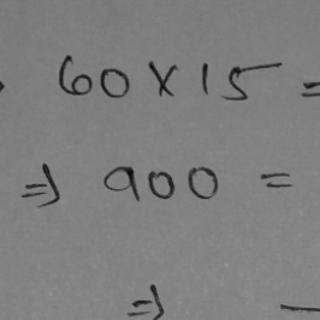 60 × 15 =
⇒ 900 =
⇒